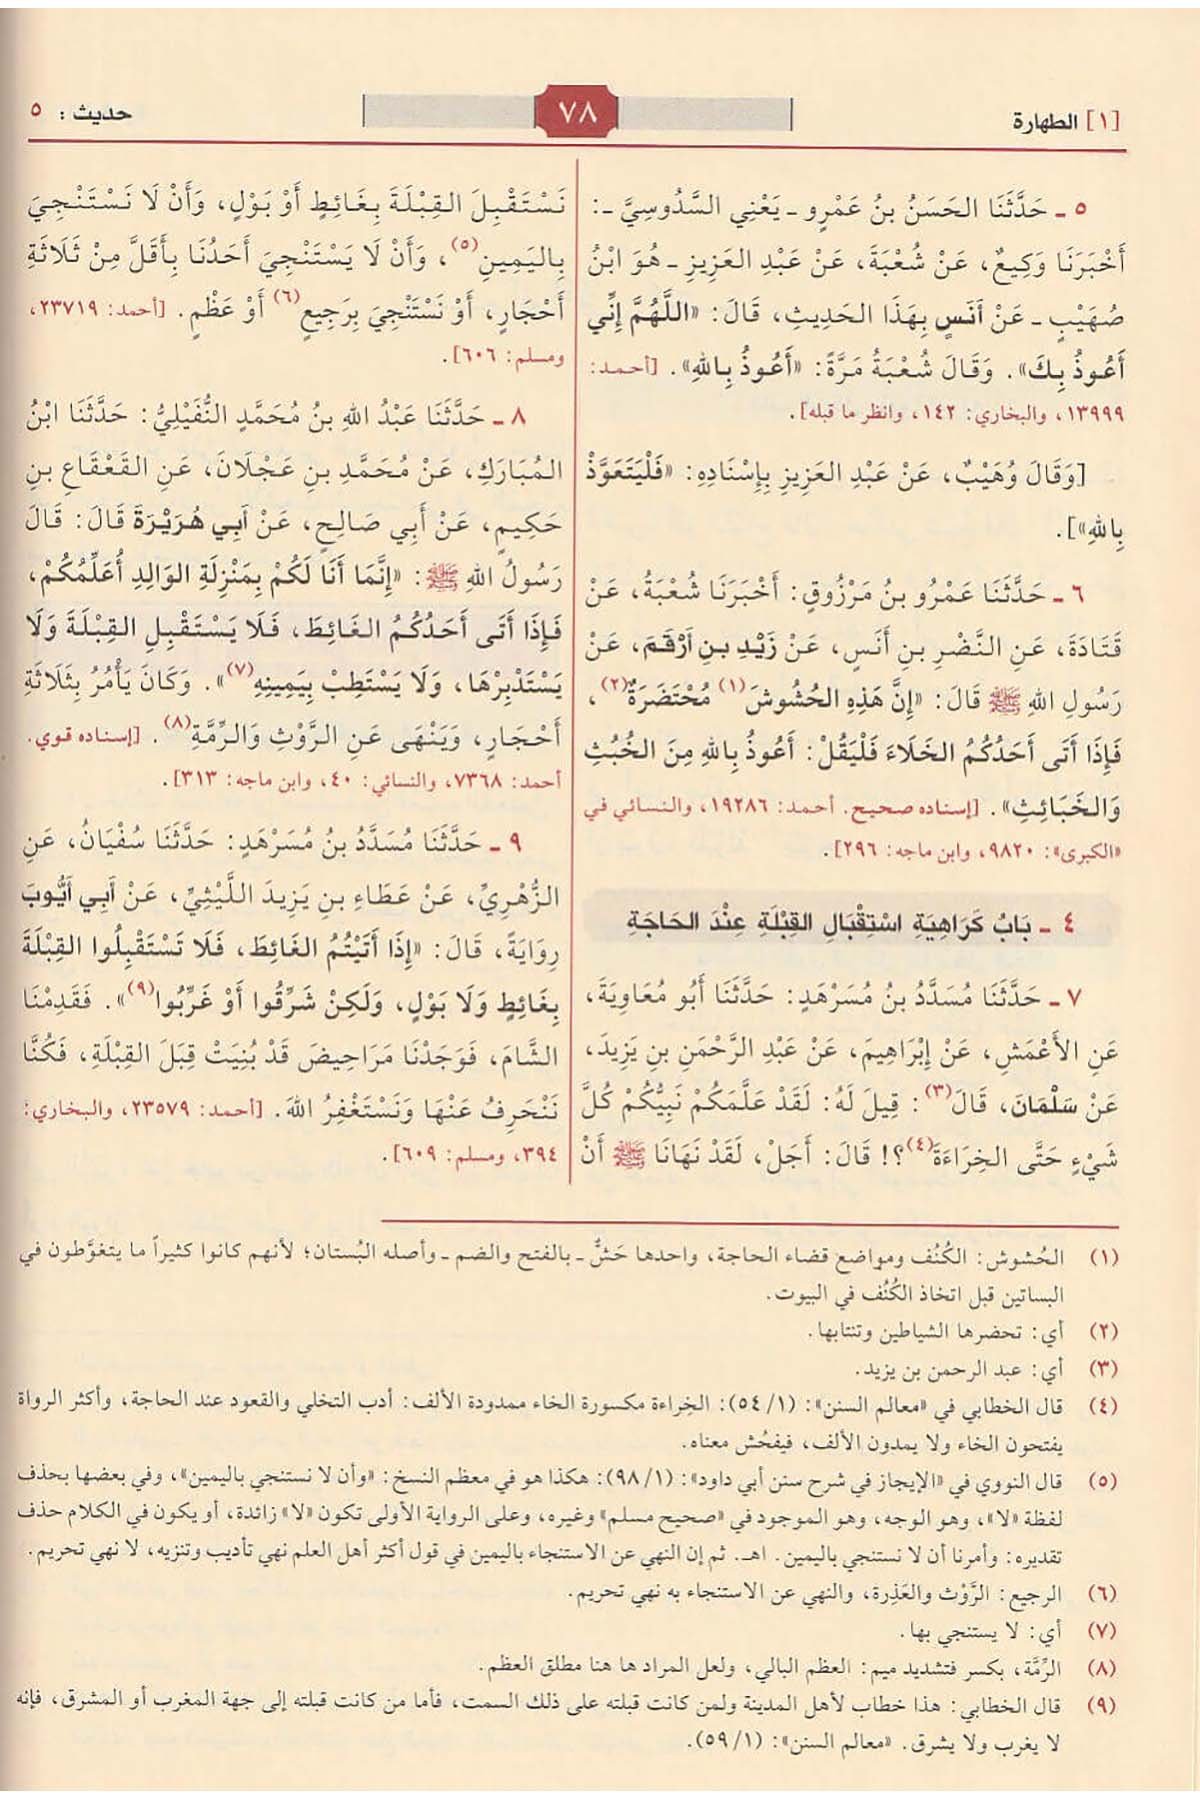 [١] الطهارة
٧٨
حديث : ٥
٥ ـ حَدَّثَنَا الحَسَنُ بنُ عَمْرٍو ـ يَعْنِي السَّدُوسِيَّ ـ :
أَخْبَرَنَا وَكِيعٌ، عَنْ شُعْبَةَ، عَنْ عَبْدِ العَزِيزِ ـ هُوَ ابْنُ
صُهَيْبٍ ـ عَنْ أَنَسٍ بِهَذَا الحَدِيثِ، قَالَ: «اللَّهُمَّ إِنِّي
أَعُوذُ بِكَ». وَقَالَ شُعْبَةُ مَرَّةً: «أَعُوذُ بِاللهِ». [أحمد:
١٣٩٩٩، والبخاري: ١٤٢، وانظر ما قبله].
[وَقَالَ وُهَيْبٌ، عَنْ عَبْدِ العَزِيزِ بِإِسْنَادِهِ: «فَلْيَتَعَوَّذْ
بِاللهِ»].
٦ ـ حَدَّثَنَا عَمْرُو بنُ مَرْزُوقٍ: أَخْبَرَنَا شُعْبَةُ، عَنْ
قَتَادَةَ، عَنِ النَّضْرِ بنِ أَنَسٍ، عَنْ زَيْدِ بنِ أَرْقَمَ، عَنْ
رَسُولِ اللهِ ﷺ قَالَ: «إِنَّ هَذِهِ الحُشُوشَ(١) مُحْتَضَرَةٌ(٢)،
فَإِذَا أَتَى أَحَدُكُمُ الخَلَاءَ فَلْيَقُلْ: أَعُوذُ بِاللهِ مِنَ الخُبُثِ
وَالخَبَائِثِ». [إسناده صحيح. أحمد: ١٩٢٨٦، والنسائي في
«الكبرى»: ٩٨٢٠، وابن ماجه: ٢٩٦].
٤ ـ بَابُ كَرَاهِيَةِ اسْتِقْبَالِ القِبْلَةِ عِنْدَ الحَاجَةِ
٧ ـ حَدَّثَنَا مُسَدَّدُ بنُ مُسَرْهَدٍ: حَدَّثَنَا أَبُو مُعَاوِيَةَ،
عَنِ الأَعْمَشِ، عَنْ إِبْرَاهِيمَ، عَنْ عَبْدِ الرَّحْمَنِ بنِ يَزِيدَ،
عَنْ سَلْمَانَ، قَالَ(٣): قِيلَ لَهُ: لَقَدْ عَلَّمَكُمْ نَبِيُّكُمْ كُلَّ
شَيْءٍ حَتَّى الخِرَاءَةَ(٤)؟! قَالَ: أَجَلْ، لَقَدْ نَهَانَا ﷺ أَنْ
نَسْتَقْبِلَ القِبْلَةَ بِغَائِطٍ أَوْ بَوْلٍ، وَأَنْ لَا نَسْتَنْجِيَ
بِاليَمِينِ(٥)، وَأَنْ لَا يَسْتَنْجِيَ أَحَدُنَا بِأَقَلَّ مِنْ ثَلَاثَةِ
أَحْجَارٍ، أَوْ نَسْتَنْجِيَ بِرَجِيعٍ(٦) أَوْ عَظْمٍ. [أحمد: ٢٣٧١٩،
ومسلم: ٦٠٦].
٨ ـ حَدَّثَنَا عَبْدُ اللهِ بنُ مُحَمَّدٍ النُّفَيْلِيُّ: حَدَّثَنَا ابْنُ
المُبَارَكِ، عَنْ مُحَمَّدِ بنِ عَجْلَانَ، عَنِ القَعْقَاعِ بنِ
حَكِيمٍ، عَنْ أَبِي صَالِحٍ، عَنْ أَبِي هُرَيْرَةَ قَالَ: قَالَ
رَسُولُ اللهِ ﷺ: «إِنَّمَا أَنَا لَكُمْ بِمَنْزِلَةِ الوَالِدِ أُعَلِّمُكُمْ،
فَإِذَا أَتَى أَحَدُكُمُ الغَائِطَ، فَلَا يَسْتَقْبِلِ القِبْلَةَ وَلَا
يَسْتَدْبِرْهَا، وَلَا يَسْتَطِبْ بِيَمِينِهِ(٧)». وَكَانَ يَأْمُرُ بِثَلَاثَةِ
أَحْجَارٍ، وَيَنْهَى عَنِ الرَّوْثِ وَالرِّمَّةِ(٨). [إسناده قوي.
أحمد: ٧٣٦٨، والنسائي: ٤٠، وابن ماجه: ٣١٣].
٩ ـ حَدَّثَنَا مُسَدَّدُ بنُ مُسَرْهَدٍ: حَدَّثَنَا سُفْيَانُ، عَنِ
الزُّهْرِيِّ، عَنْ عَطَاءِ بنِ يَزِيدَ اللَّيْثِيِّ، عَنْ أَبِي أَيُّوبَ
رِوَايَةً، قَالَ: «إِذَا أَتَيْتُمُ الغَائِطَ، فَلَا تَسْتَقْبِلُوا القِبْلَةَ
بِغَائِطٍ وَلَا بَوْلٍ، وَلَكِنْ شَرِّقُوا أَوْ غَرِّبُوا(٩)». فَقَدِمْنَا
الشَّامَ، فَوَجَدْنَا مَرَاحِيضَ قَدْ بُنِيَتْ قِبَلَ القِبْلَةِ، فَكُنَّا
نَنْحَرِفُ عَنْهَا وَنَسْتَغْفِرُ اللهَ. [أحمد: ٢٣٥٧٩، والبخاري:
٣٩٤، ومسلم: ٦٠٩].
(١) الحُشوش: الكُنُف ومواضع قضاء الحاجة، واحدها حَشٌّ ـ بالفتح والضم ـ وأصله البُستان؛ لأنهم كانوا كثيراً ما يتغوَّطون في
البساتين قبل اتخاذ الكُنُف في البيوت.
(٢) أي: تحضرها الشياطين وتنتابها.
(٣) أي: عبد الرحمن بن يزيد.
(٤) قال الخطابي في «معالم السنن»: (١/ ٥٤): الخِراءة مكسورة الخاء ممدودة الألف: أدب التخلي والقعود عند الحاجة، وأكثر الرواة
يفتحون الخاء ولا يمدون الألف، فيفحُش معناه.
(٥) قال النووي في «الإيجاز في شرح سنن أبي داود»: (١/ ٩٨): هكذا هو في معظم النسخ: «وأن لا نستنجي باليمين»، وفي بعضها بحذف
لفظة «لا»، وهو الوجه، وهو الموجود في «صحيح مسلم» وغيره، وعلى الرواية الأولى تكون «لا» زائدة، أو يكون في الكلام حذف
تقديره: وأمرنا أن لا نستنجي باليمين. اهـ. ثم إن النهي عن الاستنجاء باليمين في قول أكثر أهل العلم نهي تأديب وتنزيه، لا نهي تحريم.
(٦) الرجيع: الرَّوْث والعَذِرة، والنهي عن الاستنجاء به نهي تحريم.
(٧) أي: لا يستنجي بها.
(٨) الرِّمَّة، بكسر فتشديد ميم: العظم البالي، ولعل المراد ها هنا مطلق العظم.
(٩) قال الخطابي: هذا خطاب لأهل المدينة ولمن كانت قبلته على ذلك السمت، فأما من كانت قبلته إلى جهة المغرب أو المشرق، فإنه
لا يغرب ولا يشرق. «معالم السنن»: (١/ ٥٩).